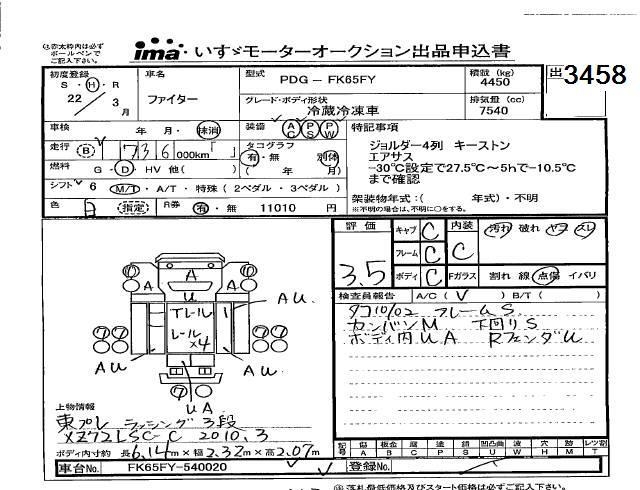 ㊟赤太枠内は必ず
ボールペンで
ご記入下さい。
ima いすゞモーターオークション出品申込書
初度登録 S・H・R 22年 3月
車名 ファイター
型式 PDG－FK65FY
積載 (kg) 4450
出 3458
グレード・ボディ形状 冷蔵冷凍車
排気量 (cc) 7540
車検 年 月・抹消
装備 AC PS PW
特記事項
走行 B 1736 000km「 」
タコグラフ 有・無 別体 ( 年 月)
ジョルダー4列 キーストン
エアサス
-30℃設定で27.5℃～5hで-10.5℃
まで確認
燃料 G・D・HV 他( )
シフト 6 M/T・A/T・特殊 ( 2ペダル ・ 3ペダル )
架装物年式：( 年式)・不明
※不明の場合は、不明に○をする。
色 白 指定 R券 有・無 11010 円
評価 3.5
キャブ C
フレーム C
ボディ C
内装 C
汚れ 破れ ヤコ スレ
Fガラス 割れ 線 点傷 イバリ
検査員報告 A/C ( V ) B/T ( )
タコ10/02 フレームS
カンバンM 下回りS
ボディ内UA RフェンダU
A
A A
U
Tレール
レール
×4
AU
AU
AU
UA
上物情報
東プレ ラッシング3段
XZ72LSC-C 2010.3
ボディ内寸約 長6.14m×幅2.32m×高2.07m
記号 傷 A 板金 B 腐 C 塗 P 錆 S 凹凸曲 U 波 W 穴 H 跡 M レツ割 T
車台No. FK65FY-540020
登録No.